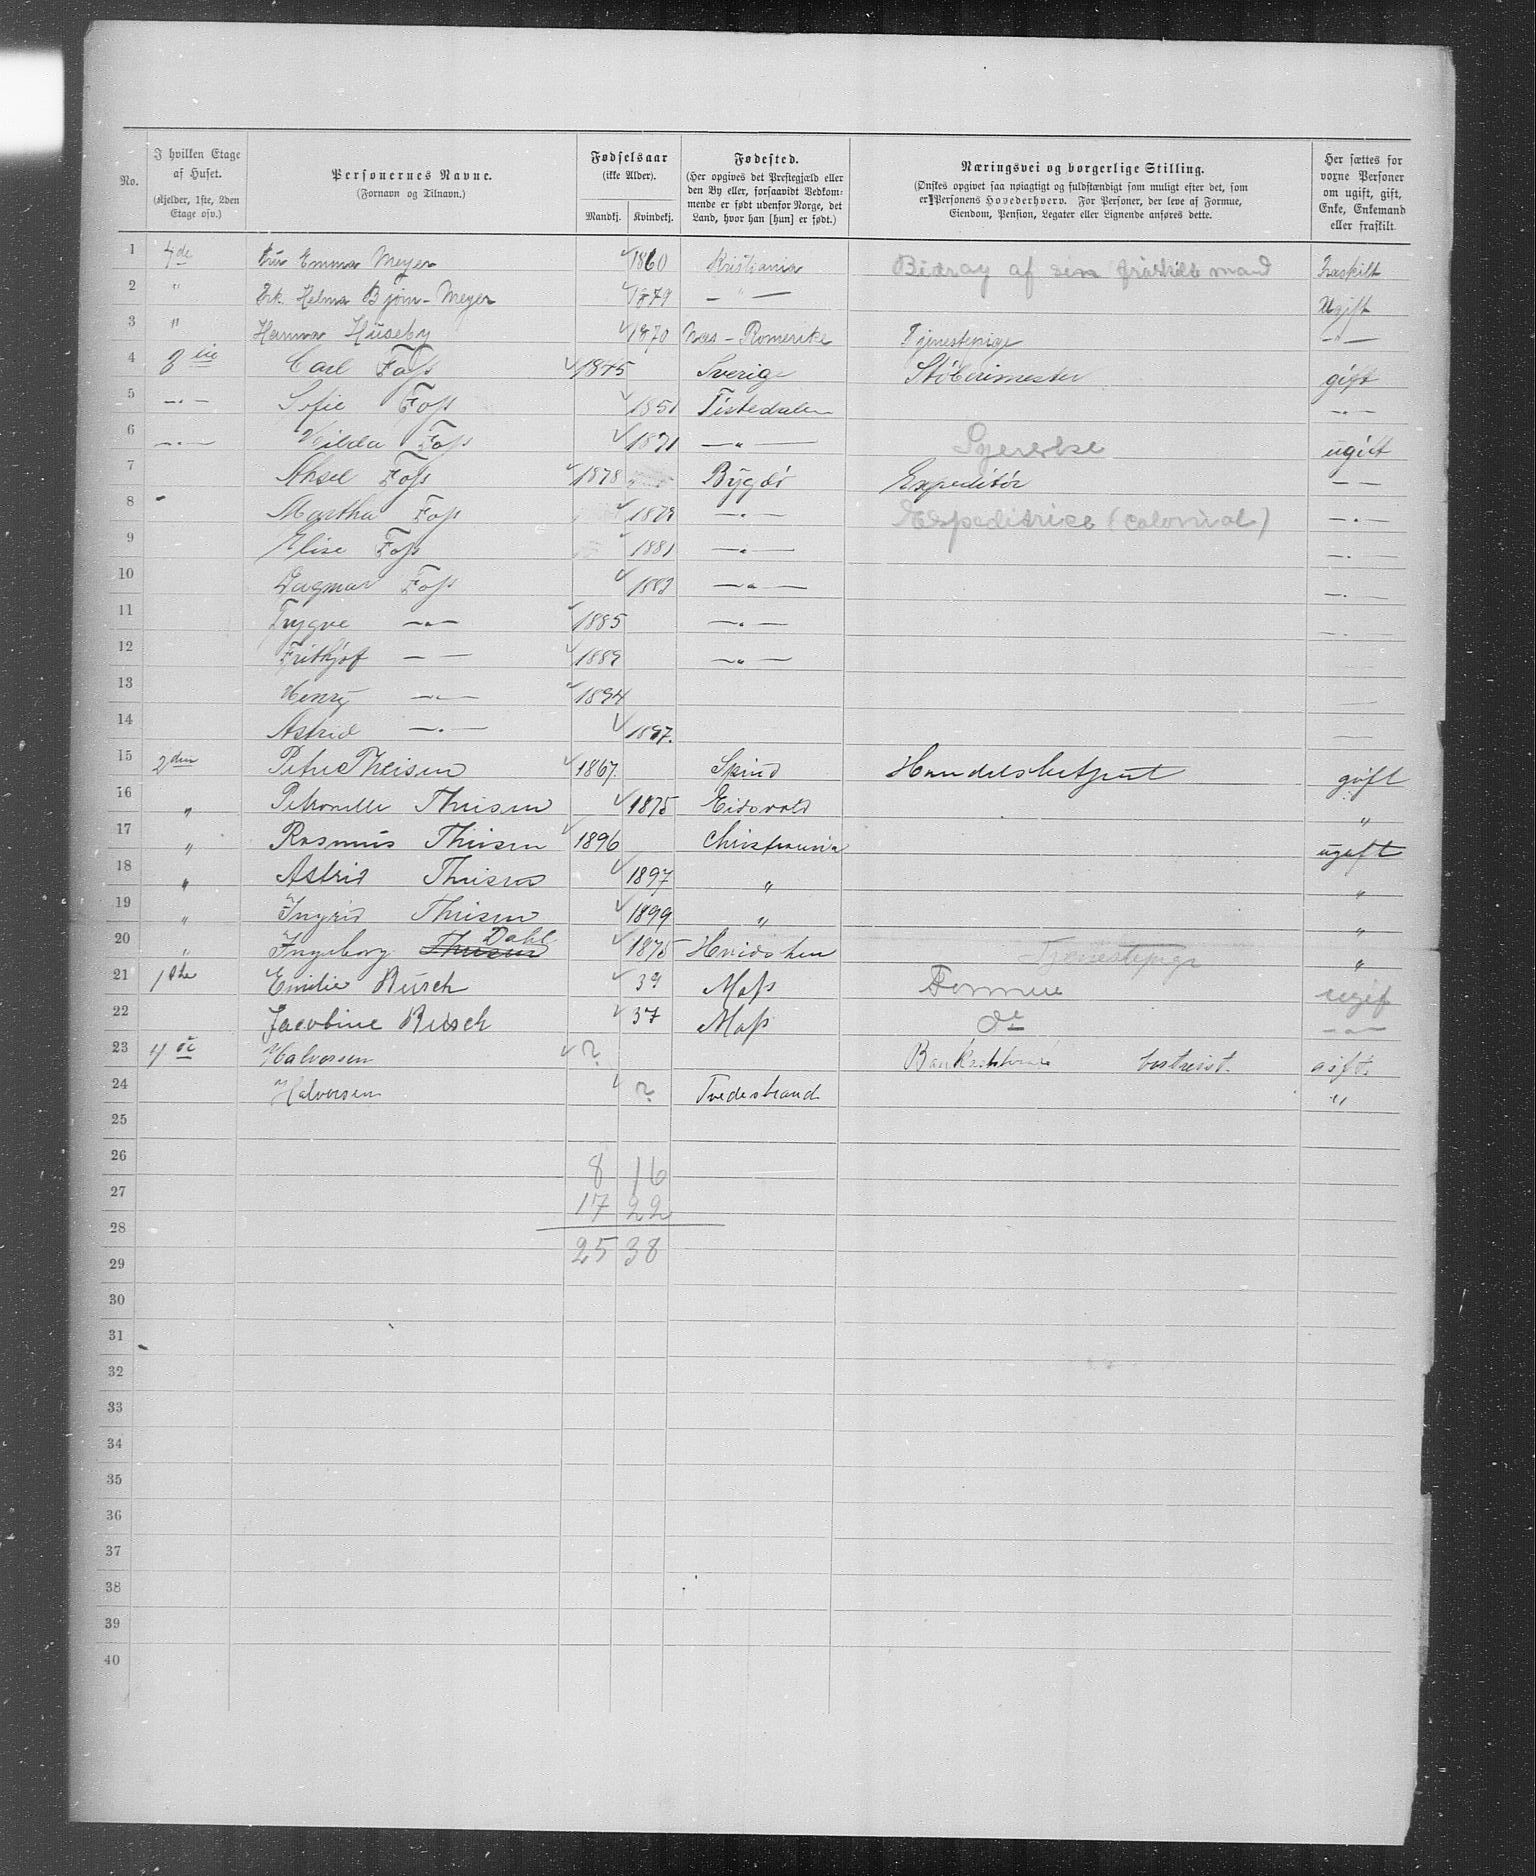 No. | I hvilken Etage af Huset. (Kjelder, 1ste, 2den Etage osv.) | Personernes Navne. (Fornavn og Tilnavn.) | Fødselsaar (ikke Alder). Mandkj. | Kvindekj. | Fødested. (Her opgives det Prestegjæld eller den By eller, forsaavidt Vedkommende er født udenfor Norge, det Land, hvor han [hun] er født.) | Næringsvei og borgerlige Stilling. (Ønskes opgivet saa nøiagtigt og fuldstændigt som muligt efter det, som er Personens Hovederhverv. For Personer, der leve af Formue, Eiendom, Pension, Legater eller Lignende anføres dette. | Her sættes for voxne Personer om ugift, gift, Enke, Enkemand eller fraskilt.
1 4de Fru Emma Meyer 1860 Kristiania Bidrag af sin fraskilte mand Fraskilt
2 " Frk. Helma Bjørn-Meyer 1879 — " — Ugift
3 " Hanna Huseby 1870 Næs - Romerike Tjenestepige — " —
4 3die Carl Foss 1845 Sverige Støberimester gift
5 — " — Sofie Foss 1851 Tistedalen — " —
6 — " — Hilda Foss 1871 — " — Syerske ugift
7 Aksel Foss 1878 Bygdø Expeditør — —
8 Martha Foss 1879 — " — Expeditrice (colonial) — " —
9 Elise Foss 1881 — " — — " —
10 Dagmar Foss 1883 — " — — " —
11 Trygve — " — 1885 — " — — " —
12 Frithjof — — 1889 — " —
13 Henry — " — 1894 —
14 Astrid — " — 1897. —
15 2den Peter Theisen 1867. Spind Handelsbetjent gift
16 " Petronelle Theisen 1875 Eidsvold "
17 " Rasmus Theisen 1896 Christiania ugift
18 " Astrid Theisen 1897 " "
19 " Ingrid Theisen 1899 " "
20 " Ingeborg Theisen Dahl 1875 Hvidsten Tjenestepige "
21 1ste Emilie Busch 39 Moss Formue ugift
22 Jacobine Busch 37 Moss do — " —
23 4de Halvorsen ? bortreist. gift.
24 Halvorsen ? Tvedestrand "
25
26 8 16
27 17 22
28 25 38
29
30
31
32
33
34
35
36
37
38
39
40